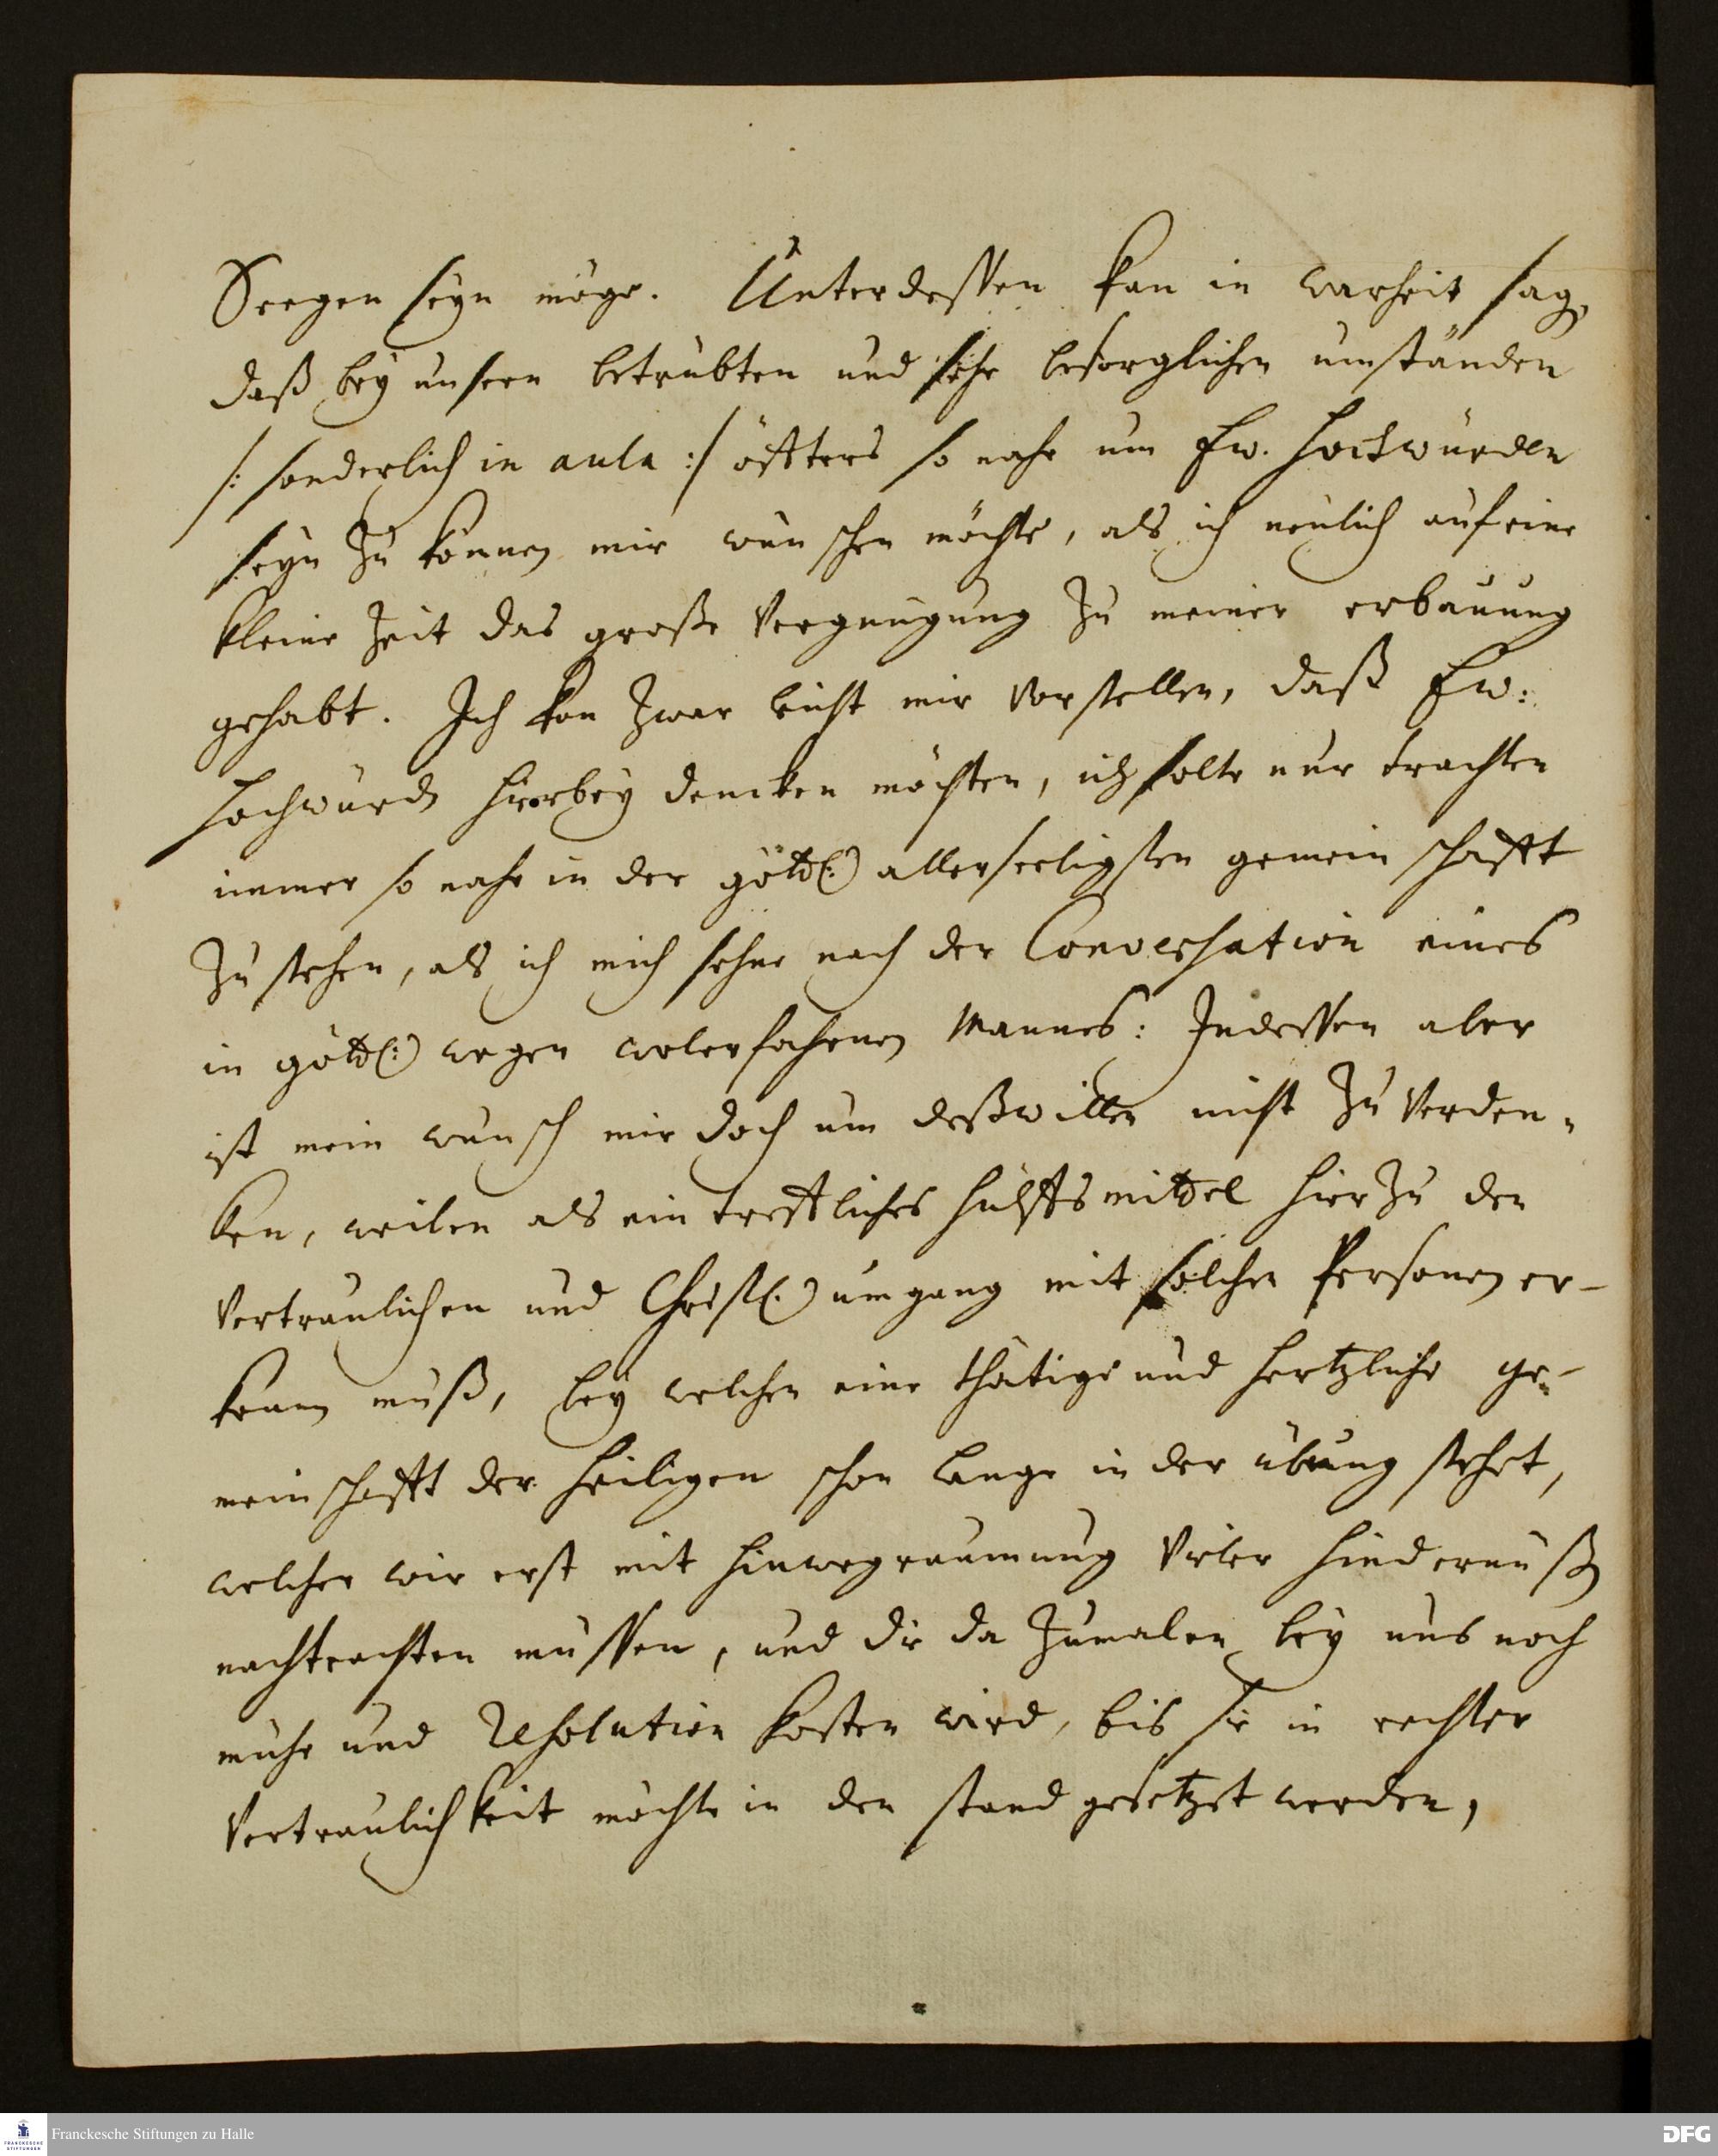 Seegen seyn möge. Unterdessen kan in warheit sag,
daß bey unsern betrübten und sehr besorglichen umständen
/: sonderlich in aula :/ öffters so nahe um Ew. Hochwürden
seyn zu können mir wünschen möchte, als ich neulich auf eine
kleine Zeit das große Vergnügung zu meiner erbauung
gehabt. Ich kan zwar leicht mir vorstellen, daß Ew:
Hochwürd hierbey dencken möchten, ich solte nur trachten
immer so nahe in der göttl(:) allerseeligsten gemeinschafft
zu stehen, als ich mich sehne nach der Conversation eines
in göttl(:) wegen wolerfahrnen Mannes: Indessen aber
ist mein wunsch mir doch um deßwillen nicht zu verden„
ken, weilen als ein treffliches hülffsmittel hierzu den
vertraulichen und Christl(.) umgang mit solchen Personen er-
kennen muß, bey welchen eine thätige und hertzliche ge-
meinschafft der Heiligen schon lange in der übung stehet,
welcher wir erst mit hinwegräumung vieler hindernüß
nachtrachten müssen, und die da zumalen bey uns noch
mühe und Resolution kosten wird, bis sie in rechter
Vertraulichkeit möchte in den stand gesetzet werden,
Franckesche Stiftungen zu Halle
FRANCKESCHE
STIFTUNGEN
DFG